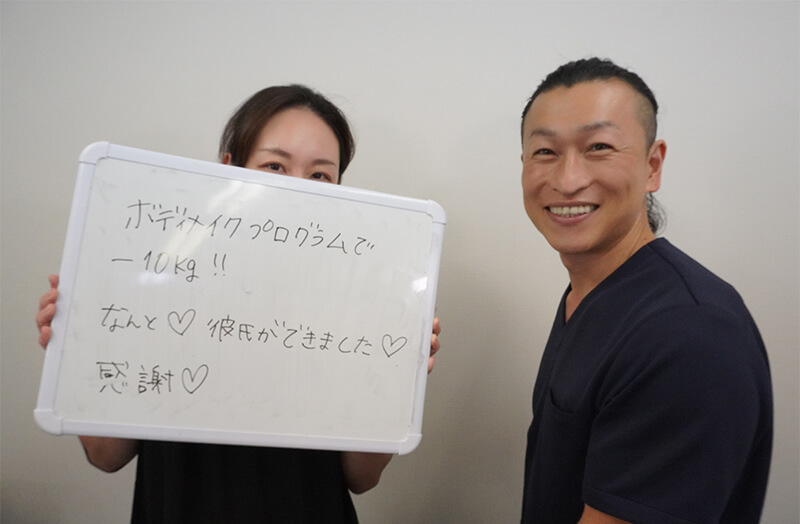 ボディメイクプログラムで
-10kg!!
なんと♡ 彼氏ができました♡
感謝♡